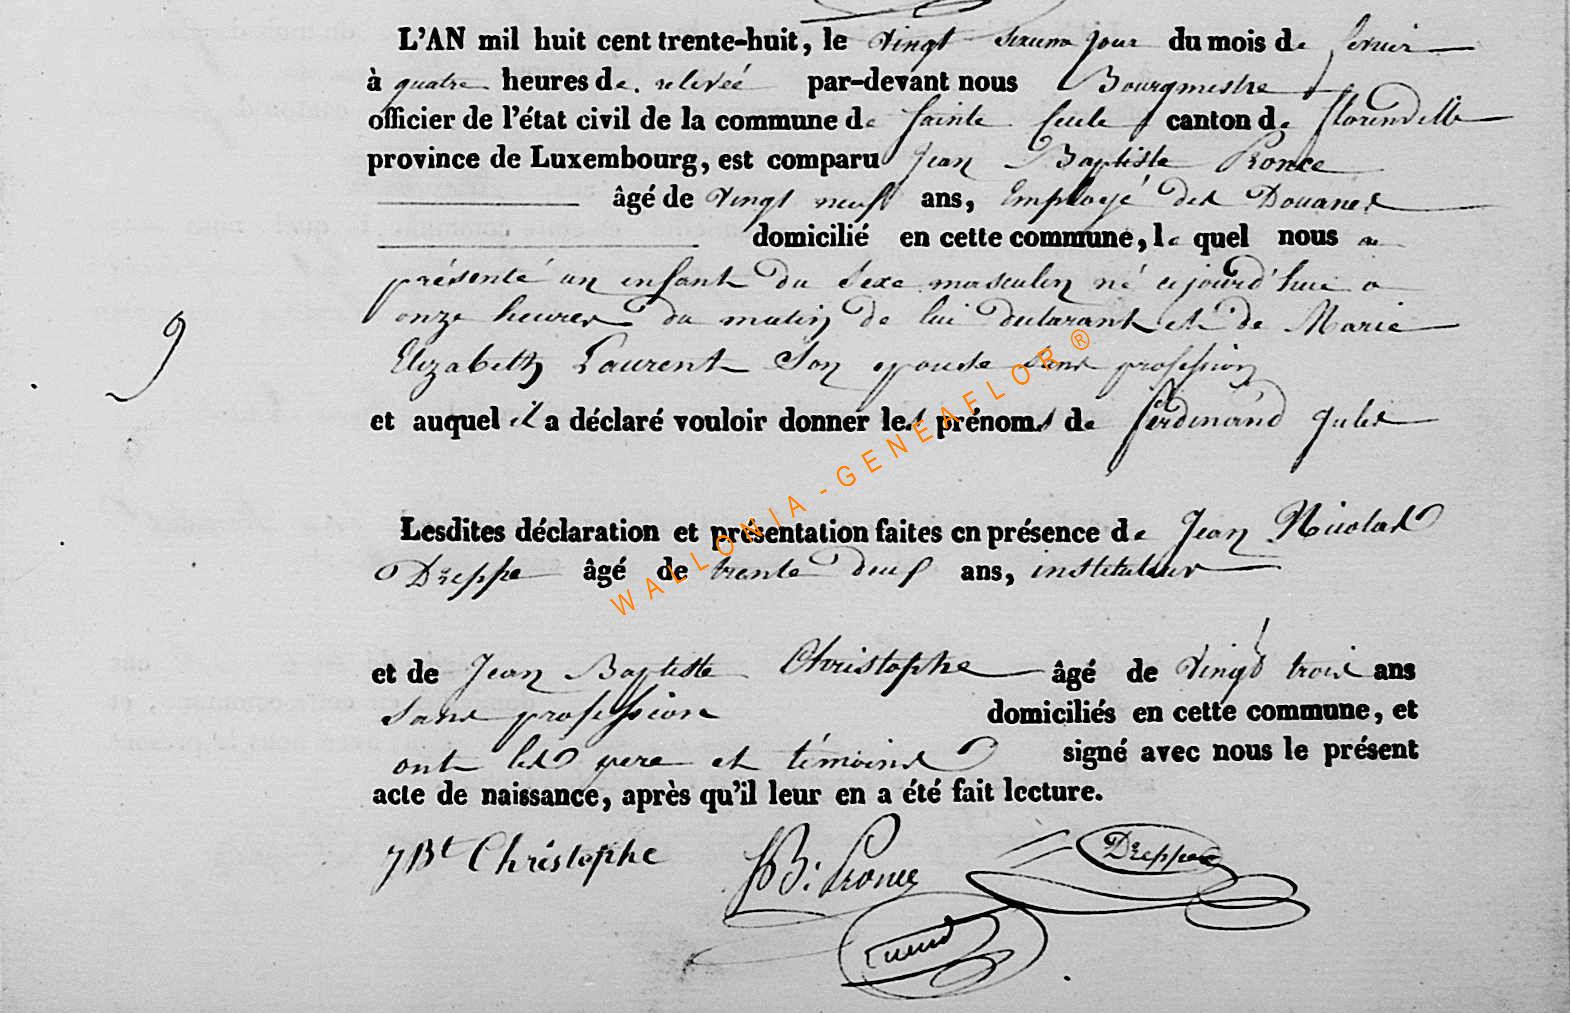 L'AN mil huit cent trente-huit, le vingt sixieme jour du mois de fevrier
à quatre heures de relevée par-devant nous Bourgmestre
officier de l'état civil de la commune de Sainte Cecile canton de florenville
province de Luxembourg, est comparu Jean Baptiste Pronce
âgé de vingt neuf ans, Employé des Douanes
domicilié en cette commune, le quel nous a
présenté un enfant du sexe masculin né cejourd'hui a
onze heures du matin de lui declarant et de Marie
Elizabeth Laurent son epouse sans profession
et auquel il a déclaré vouloir donner les prénoms de ferdinand Jules
9
Lesdites déclaration et présentation faites en présence de Jean Nicolas
Dreppe âgé de trente deux ans, instituteur
et de Jean Baptiste Christophe âgé de vingt trois ans
sans profession domiciliés en cette commune, et
ont les pere et témoins signé avec nous le présent
acte de naissance, après qu'il leur en a été fait lecture.
JBt Christophe JB. Pronce Dreppe
WALLONIA-GENEAFLOR®